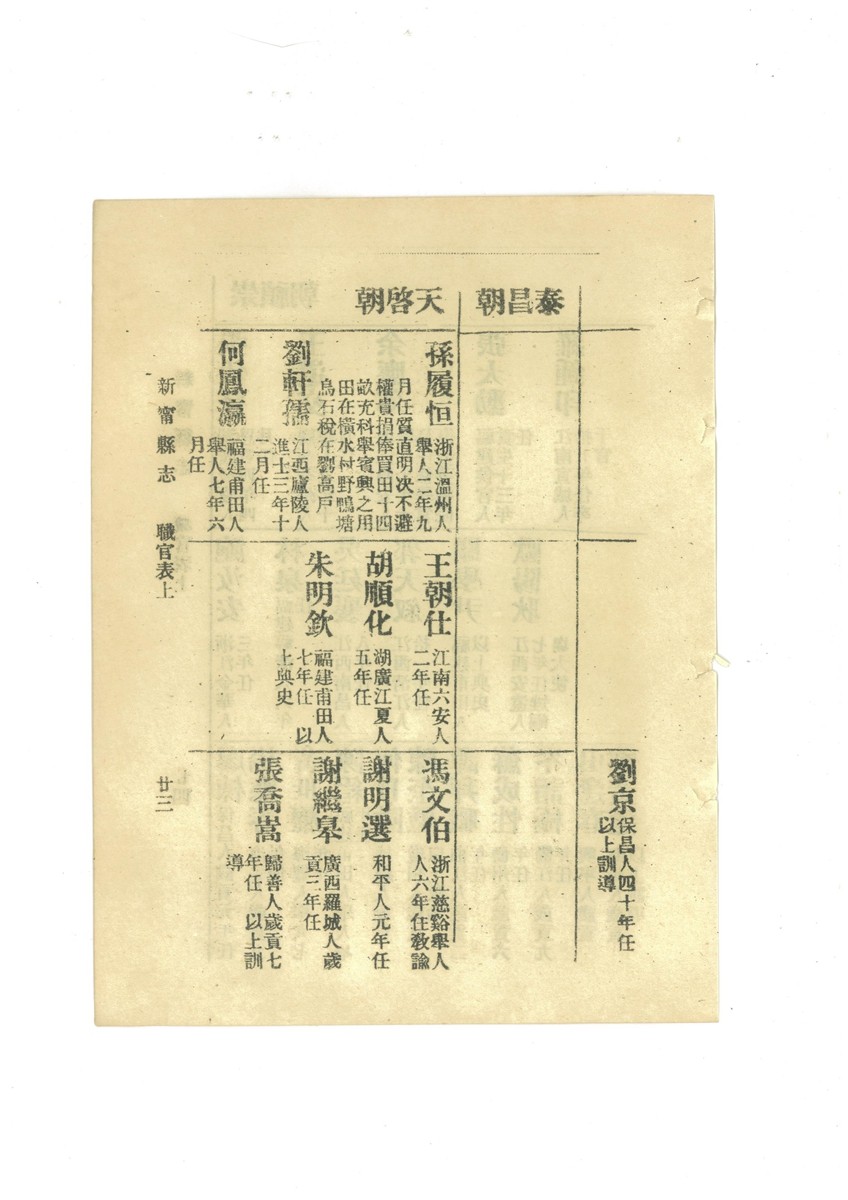 劉京
保昌人四十年任
以上訓導
泰昌朝
天啓朝
孫履恒
浙江溫州人
舉人二年九
月任質直明決不避
權貴捐俸買田十四
畝充科舉賓興之用
田在橫水村野鴨塘
烏石稅在劉高戶
劉軒孺
江西廬陵人
進士三年十
二月任
何鳳瀛
福建甫田人
舉人七年六
月任
王朝仕
江南六安人
二年任
胡順化
湖廣江夏人
五年任
朱明欽
福建甫田人
七年任 以
上典史
馮文伯
浙江慈谿舉人
人六年任敎諭
謝明選
和平人元年任
謝繼皋
廣西羅城人歲
貢三年任
張喬嵩
歸善人歲貢七
年任 以上訓
導
新甯縣志 職官表上 廿三